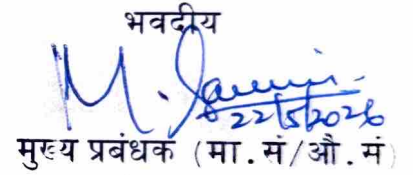 भवदीय
22/5/2026
मुख्य प्रबंधक (मा.सं/औ.सं)